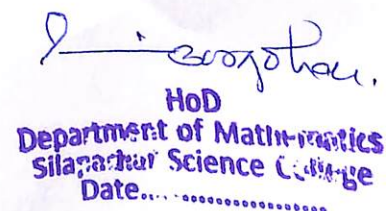 HoD
Department of Mathematics
Silapathar Science College
Date....................